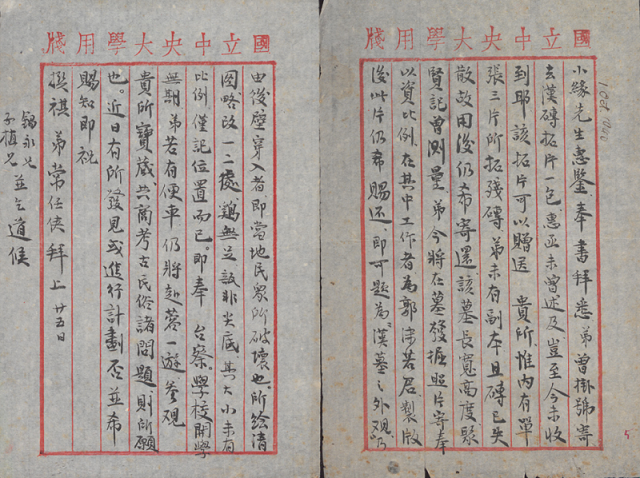 國立中央大學用牋
小緣先生惠鑒奉書拜悉弟曾掛號寄
去漢磚拓片一包惠函未曾述及豈至今未收
到耶該拓片可以贈送貴所惟內有單
張三片所拓殘磚弟未有副本且磚已失
散故用後仍希寄還該墓長寬高度聚
賢記曾測量弟今將在墓發掘照片寄奉
以資比例在其中工作者為郭沫若君製版
後此片仍希賜還即可題為漢墓之外觀乃
國立中央大學用牋
由後壁穿入者即當地民眾所破壞也所繪清
圖略改一二處鷄無足敦非尖底其大小未有
比例僅記位置而已即奉台察學校開學
無期弟若有便車仍將赴蓉一遊參觀
貴所寶藏共商考古民俗諸問題則所願
也近日有所發見或進行計劃否並希
賜知即祝
撰祺弟常任俠拜上廿五日
錫永兄
子植兄並乞道候